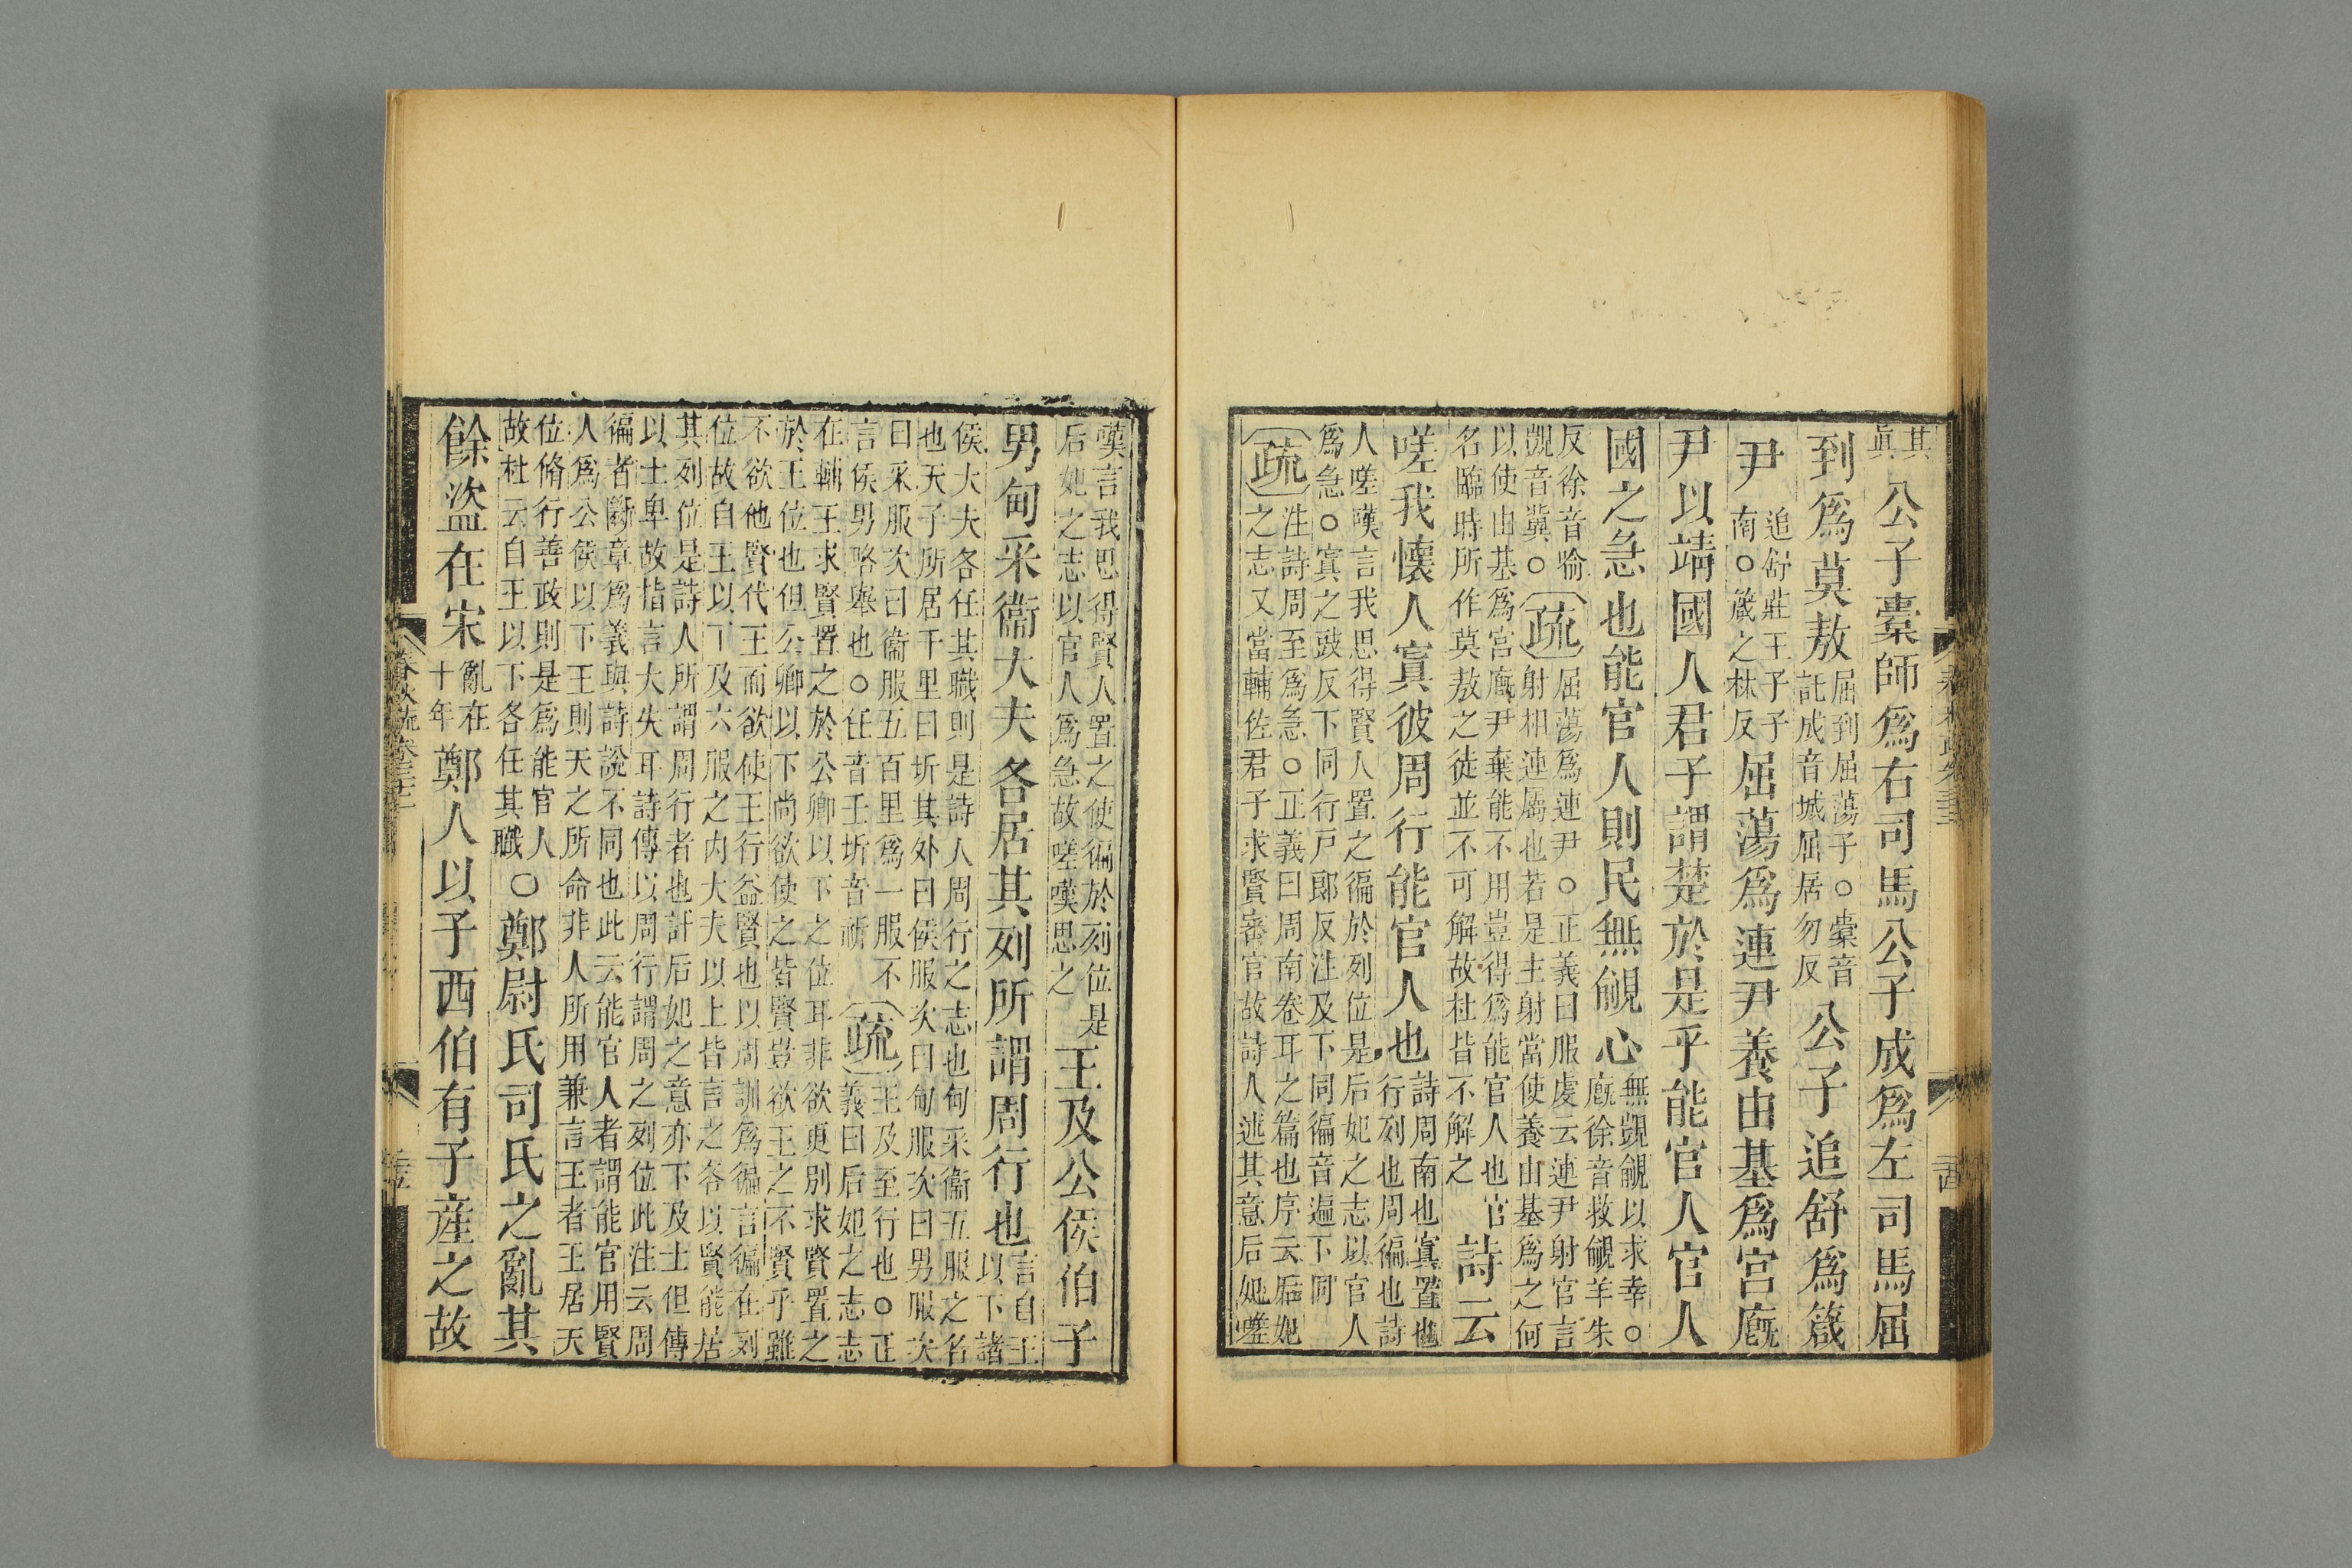 其
眞
公子橐師爲右司馬公子成爲左司馬屈
到爲莫敖
屈到屈蕩子○橐音
託成音城屈居勿反
公子追舒爲箴
尹
追舒莊王子子
南○箴之林反
屈蕩爲連尹養由基爲宮廐
尹以靖國人君子謂楚於是乎能官人官人
國之急也能官人則民無覦心
無覬覦以求幸○
廐徐音救覦羊朱
反徐音喻
覬音冀○
疏
屈蕩爲連尹○正義曰服虔云連尹射官言
射相連屬也若是主射當使養由基爲之何
以使由基爲宮廐尹棄能不用豈得爲能官人也官
名臨時所作莫敖之徒並不可解故杜皆不解之
詩云
嗟我懷人寘彼周行能官人也
詩周南也寘置也
行列也周徧也詩
人嗟嘆言我思得賢人置之徧於列位是后妃之志以官人
爲急○寘之豉反下同行戶郞反注及下同徧音遍下同
疏
注詩周至爲急○正義曰周南卷耳之篇也序云后妃
之志又當輔佐君子求賢審官故詩人述其意后妃嗟
嘆言我思得賢人置之使徧於列位是
后妃之志以官人爲急故嗟嘆思之
王及公侯伯子
男甸采衞大夫各居其列所謂周行也
言自王
以下諸
侯大夫各任其職則是詩人周行之志也甸采衞五服之名
也天子所居千里曰圻其外曰侯服次曰甸服次曰男服次
曰采服次曰衞服五百里爲一服不
言侯男略舉也○任音壬圻音祈
疏
王及至行也○正
義曰后妃之志志
在輔王求賢置之於公卿以下之位耳非欲更別求賢置之
於王位也但公卿以下尚欲使之皆賢豈欲王之不賢乎雖
不欲他賢代王而欲使王行益賢也以周訓爲徧言徧在列
位故自王以下及六服之內大夫以上皆言之各以賢能居
其列位是詩人所謂周行者也計后妃之意亦下及士但傳
以士卑故指言大夫耳詩傳以周行謂周之列位此注云周
徧者斷章爲義與詩說不同也此云能官人者謂能官用賢
人爲公侯以下王則天之所命非人所用兼言王者王居天
位脩行善政則是爲能官人
故杜云自王以下各任其職
○鄭尉氏司氏之亂其
餘盜在宋
亂在
十年
鄭人以子西伯有子産之故